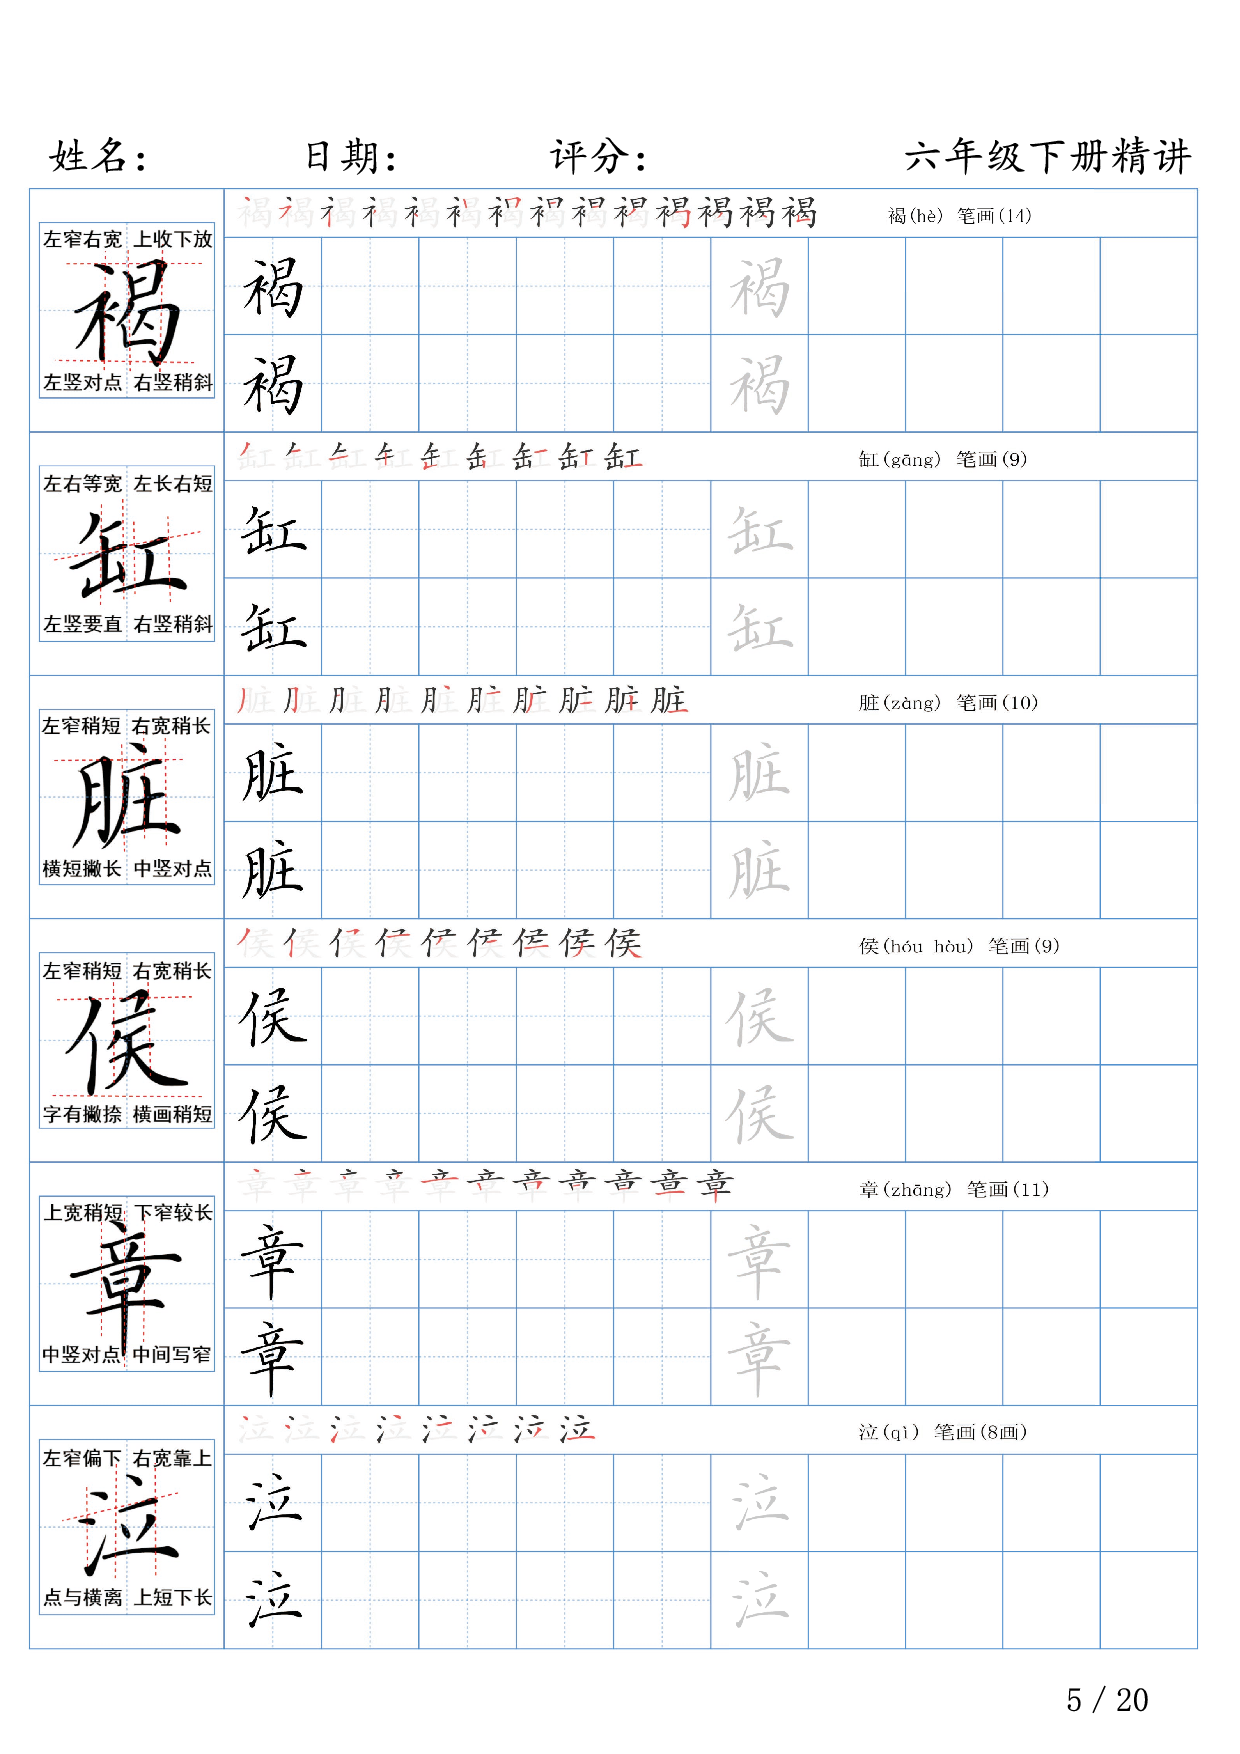 姓名： 日期： 评分： 六年级下册精讲
褐(hè) 笔画(14)
左窄右宽 上收下放
褐
左竖对点 右竖稍斜
褐 褐
褐 褐
缸(gāng) 笔画(9)
左右等宽 左长右短
缸
左竖要直 右竖稍斜
缸 缸
缸 缸
脏(zàng) 笔画(10)
左窄稍短 右宽稍长
脏
横短撇长 中竖对点
脏 脏
脏 脏
侯(hóu hòu) 笔画(9)
左窄稍短 右宽稍长
侯
字有撇捺 横画稍短
侯 侯
侯 侯
章(zhāng) 笔画(11)
上宽稍短 下窄较长
章
中竖对点 中间写窄
章 章
章 章
泣(qì) 笔画(8画)
左窄偏下 右宽靠上
泣
点与横离 上短下长
泣 泣
泣 泣
5 / 20